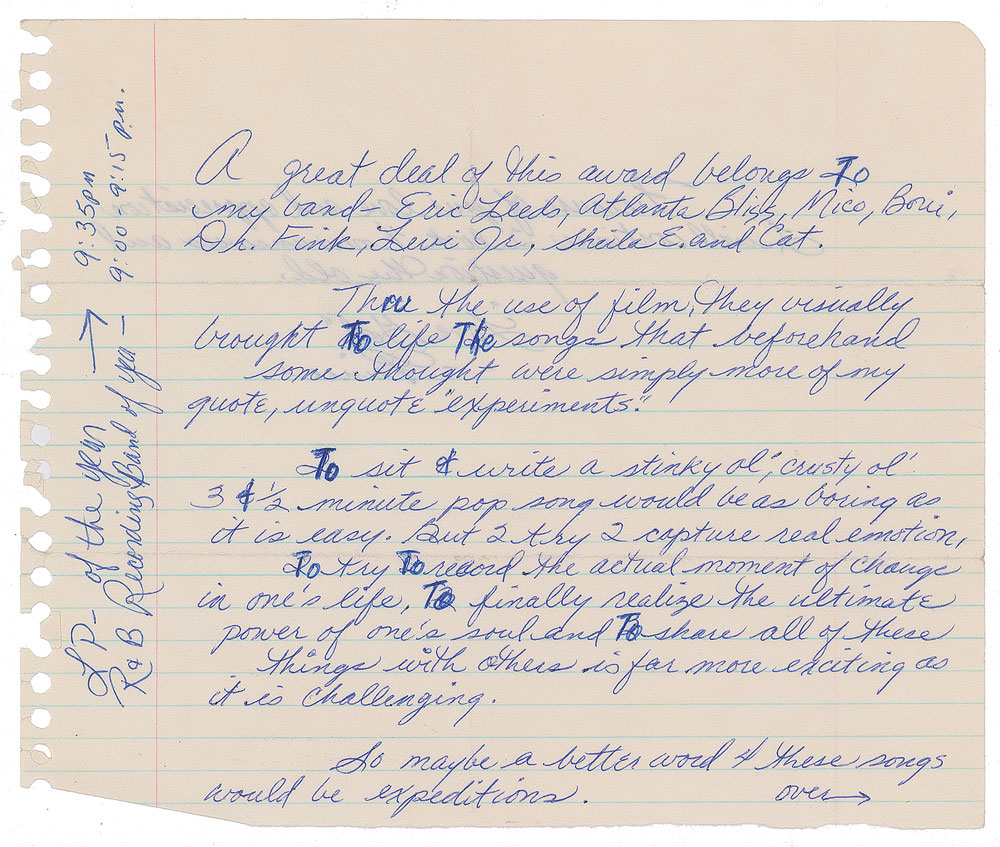 A great deal of this award belongs To
my band- Eric Leeds, Atlanta Bliss, Mico, Boni,
Dr. Fink, Levi Jr., Sheila E. and Cat.
Thru the use of film, they visually
brought To life The songs that beforehand
some thought were simply more of my
quote, unquote "experiments."
To sit & write a stinky ol', crusty ol'
3 & 1/2 minute pop song would be as boring as
it is easy. But 2 try 2 capture real emotion,
To try To record the actual moment of change
in one's life, To finally realize the ultimate
power of one's soul and To share all of these
things with others is far more exciting as
it is challenging.
So maybe a better word 4 these songs
would be expeditions. over→
LP- of the year → 9:35pm
R&B Recording Band of year - 9:00 9:15 p.m.